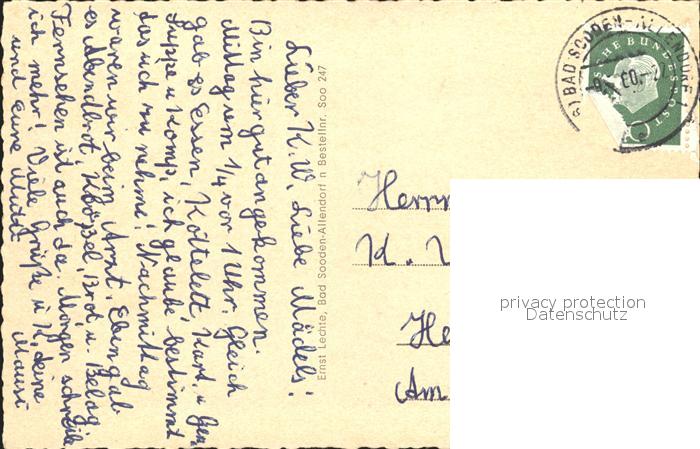 Lieber K. W, Liebe Mädels!
Bin hier gut angekommen.
Mittag um 1/4 vor 1 Uhr. Gleich
gab es Essen, Kottelett, Kart, u Gem,
Suppe u Komp, ich glaube bestimmt
das ich zu nehme! Nachmittag
waren wir beim Arzt. Eben gab
es Abendbrot, Klößel, Brot, u. Belag,
Fernsehen ist auch da. Morgen schreibe
ich mehr! Viele Grüße u K, deine
und eure Mutti
Mausi
Ernst Lechte, Bad Sooden-Allendorf n Bestellnr. Soo 247
BAD SOODEN-ALLENDORF
HE BUNDESPOST
Herrn
K.
He
Am
privacy protection
Datenschutz